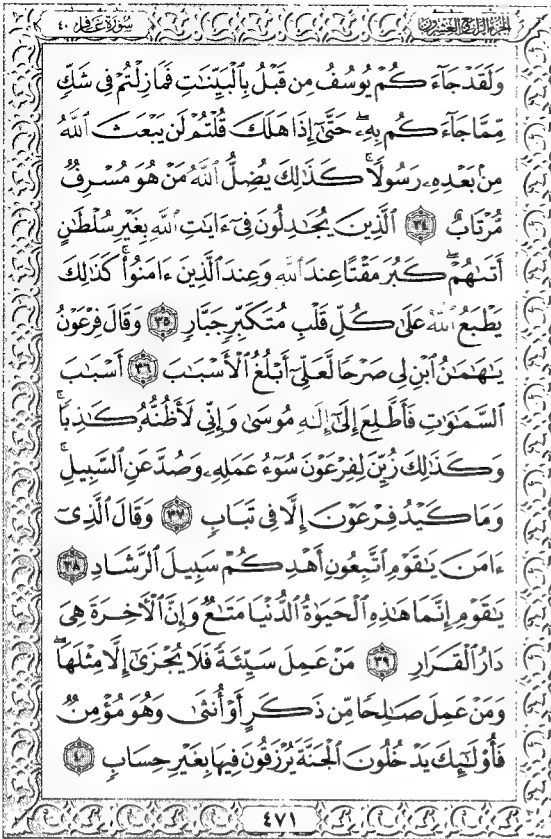 الجزء الرابع والعشرون
سورة غافر ٤٠
وَلَقَدْ جَآءَكُمْ يُوسُفُ مِن قَبْلُ بِٱلْبَيِّنَٰتِ فَمَا زِلْتُمْ فِى شَكٍّ
مِّمَّا جَآءَكُم بِهِۦ ۖ حَتَّىٰٓ إِذَا هَلَكَ قُلْتُمْ لَن يَبْعَثَ ٱللَّهُ
مِنۢ بَعْدِهِۦ رَسُولًا ۚ كَذَٰلِكَ يُضِلُّ ٱللَّهُ مَنْ هُوَ مُسْرِفٌ
مُّرْتَابٌ ٣٤ ٱلَّذِينَ يُجَٰدِلُونَ فِىٓ ءَايَٰتِ ٱللَّهِ بِغَيْرِ سُلْطَٰنٍ
أَتَىٰهُمْ ۖ كَبُرَ مَقْتًا عِندَ ٱللَّهِ وَعِندَ ٱلَّذِينَ ءَامَنُوا۟ ۚ كَذَٰلِكَ
يَطْبَعُ ٱللَّهُ عَلَىٰ كُلِّ قَلْبِ مُتَكَبِّرٍ جَبَّارٍ ٣٥ وَقَالَ فِرْعَوْنُ
يَٰهَٰمَٰنُ ٱبْنِ لِى صَرْحًا لَّعَلِّىٓ أَبْلُغُ ٱلْأَسْبَٰبَ ٣٦ أَسْبَٰبَ
ٱلسَّمَٰوَٰتِ فَأَطَّلِعَ إِلَىٰٓ إِلَٰهِ مُوسَىٰ وَإِنِّى لَأَظُنُّهُۥ كَٰذِبًا ۚ
وَكَذَٰلِكَ زُيِّنَ لِفِرْعَوْنَ سُوٓءُ عَمَلِهِۦ وَصُدَّ عَنِ ٱلسَّبِيلِ ۚ
وَمَا كَيْدُ فِرْعَوْنَ إِلَّا فِى تَبَابٍ ٣٧ وَقَالَ ٱلَّذِىٓ
ءَامَنَ يَٰقَوْمِ ٱتَّبِعُونِ أَهْدِكُمْ سَبِيلَ ٱلرَّشَادِ ٣٨
يَٰقَوْمِ إِنَّمَا هَٰذِهِ ٱلْحَيَوٰةُ ٱلدُّنْيَا مَتَٰعٌ وَإِنَّ ٱلْءَاخِرَةَ هِىَ
دَارُ ٱلْقَرَارِ ٣٩ مَنْ عَمِلَ سَيِّئَةً فَلَا يُجْزَىٰٓ إِلَّا مِثْلَهَا ۖ
وَمَنْ عَمِلَ صَٰلِحًا مِّن ذَكَرٍ أَوْ أُنثَىٰ وَهُوَ مُؤْمِنٌ
فَأُو۟لَٰٓئِكَ يَدْخُلُونَ ٱلْجَنَّةَ يُرْزَقُونَ فِيهَا بِغَيْرِ حِسَابٍ ٤٠
٤٧١